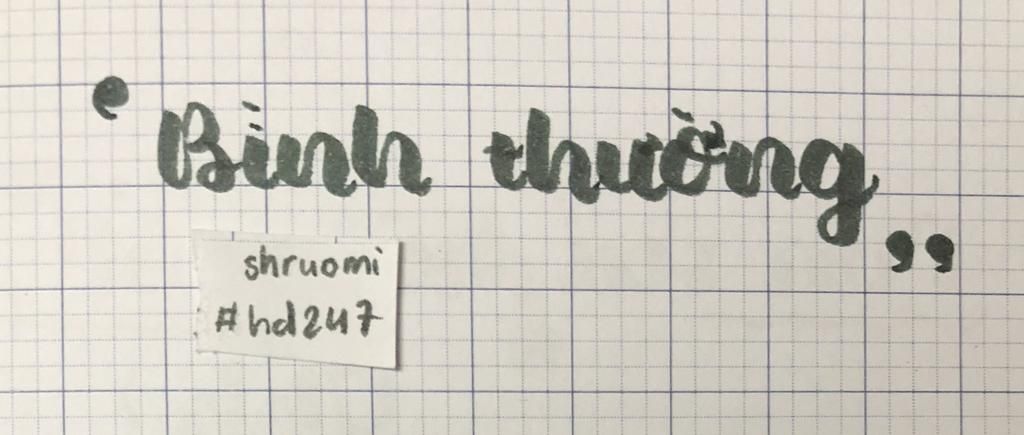 ‘Bình thường,,
shruomi
#hd247